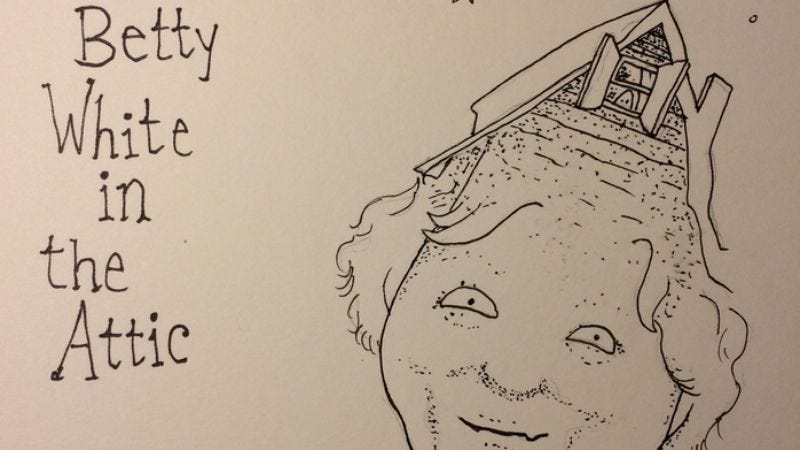 Betty
White
in
the
Attic